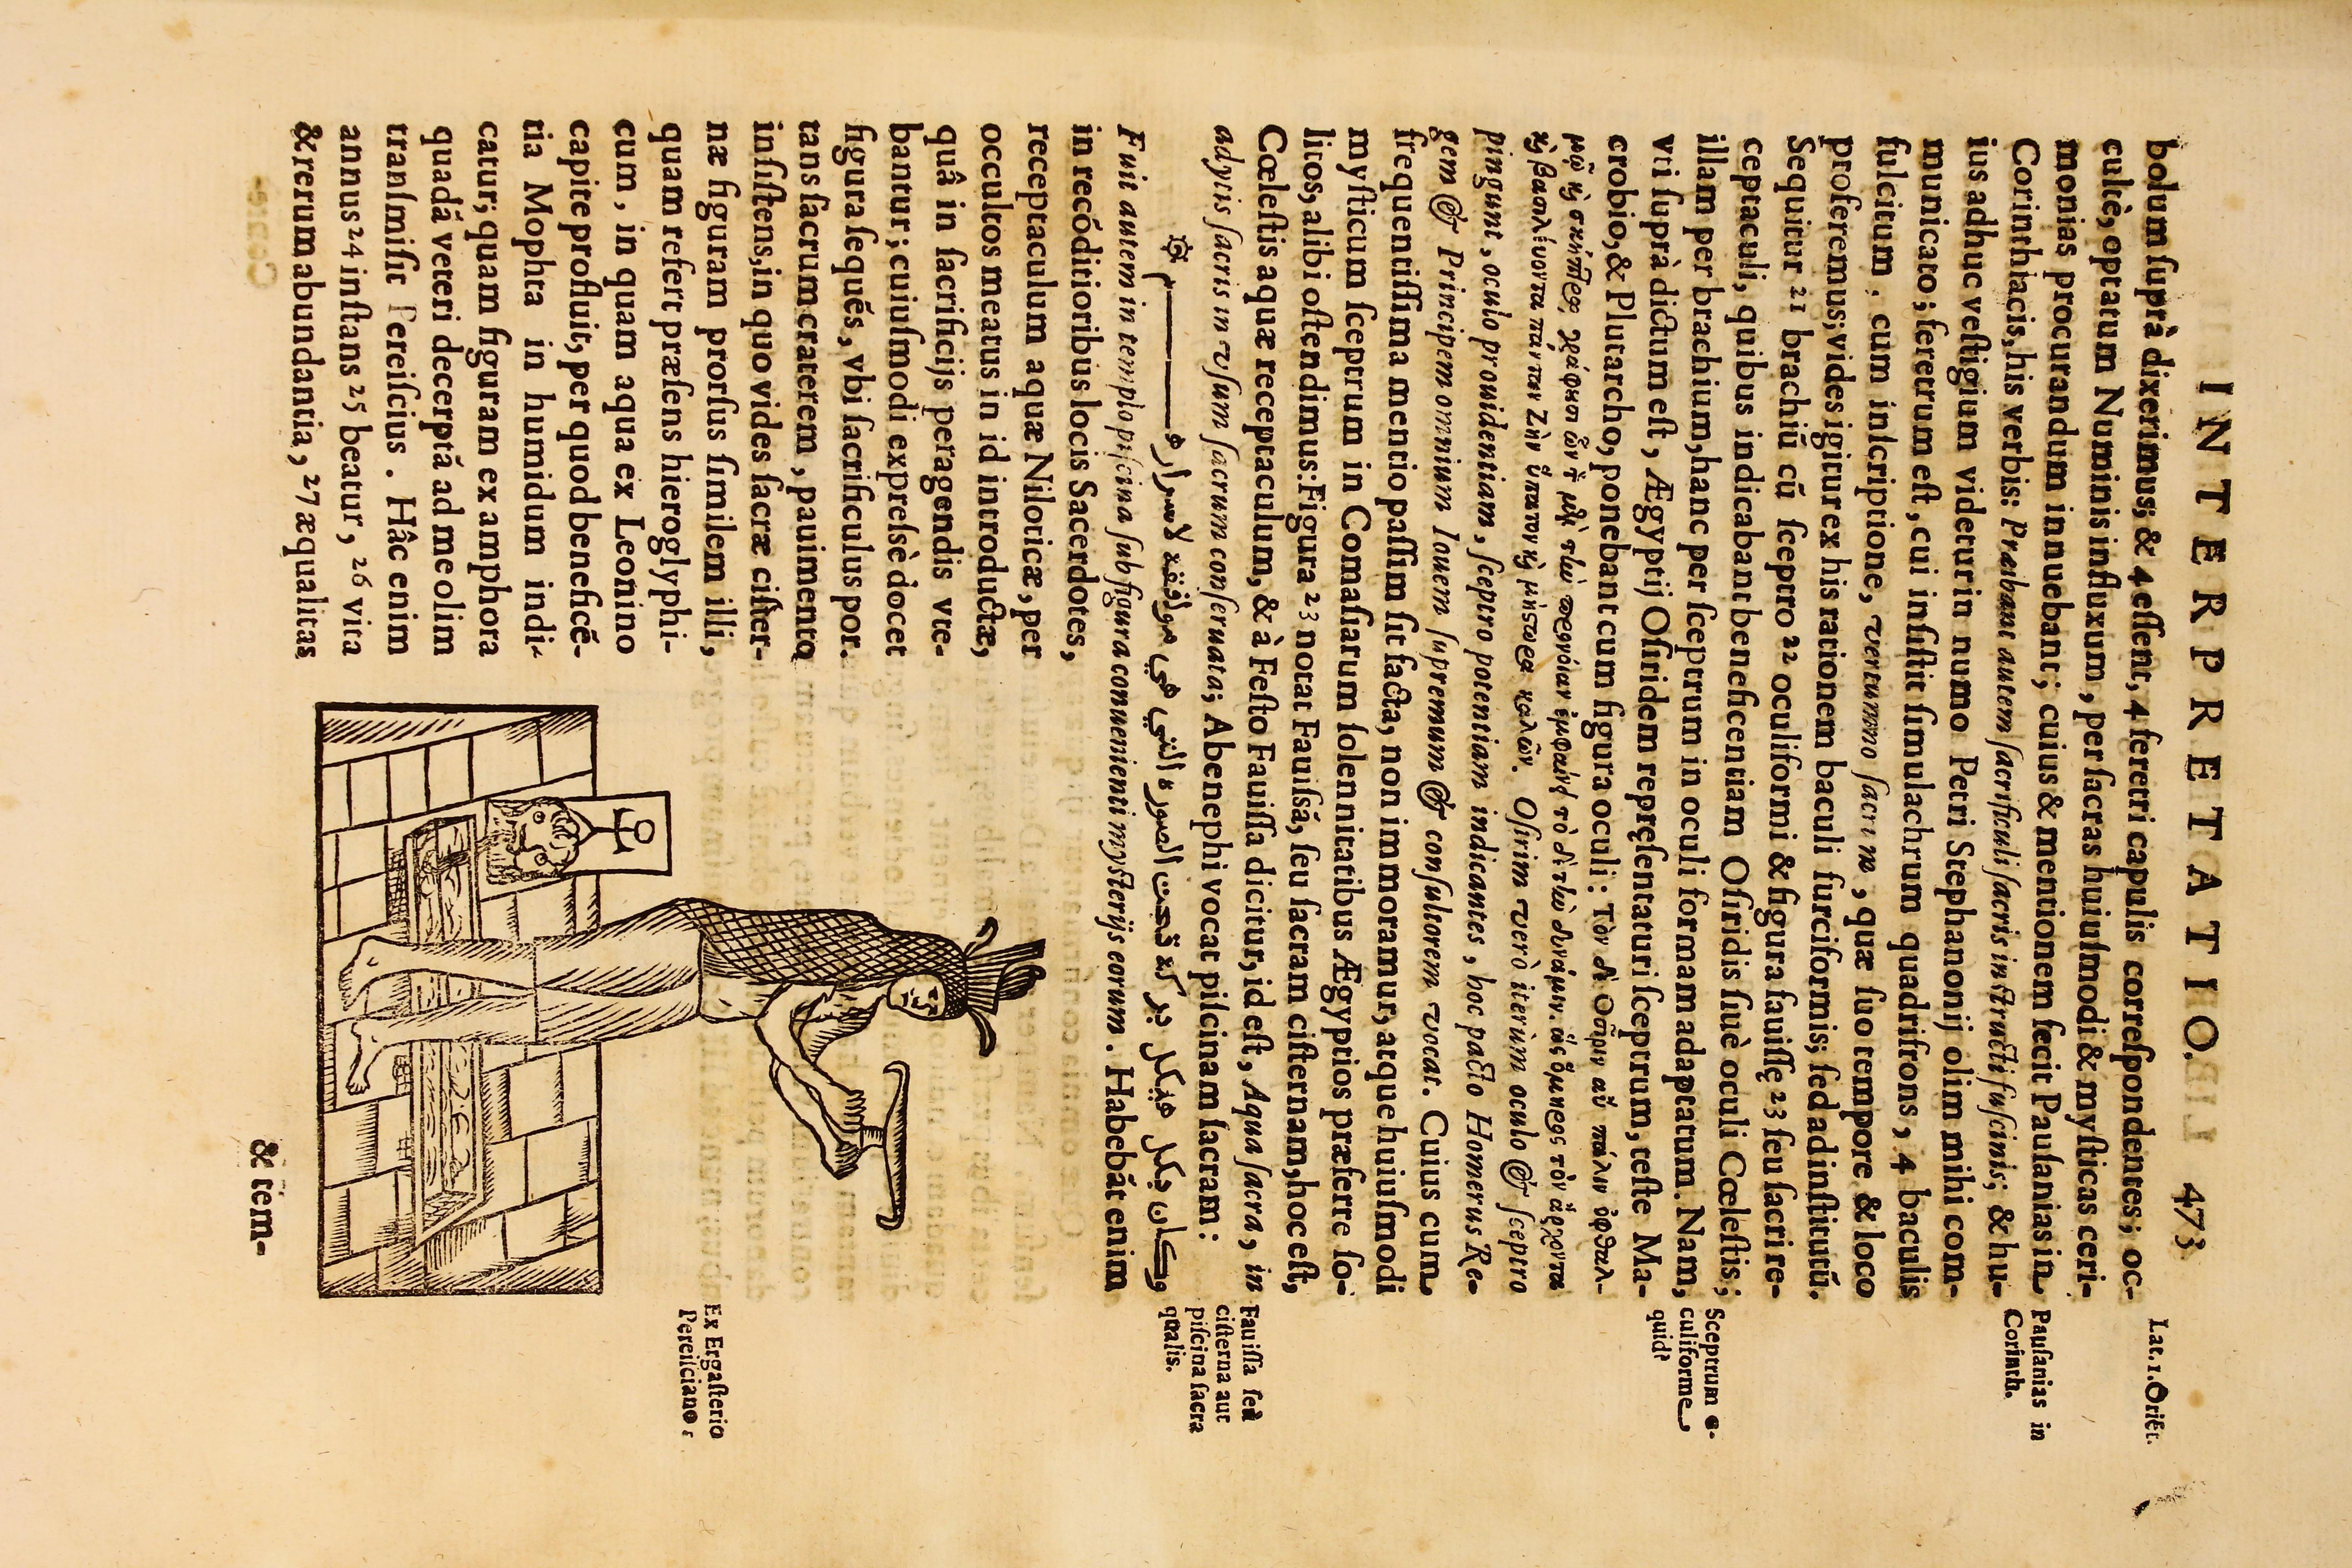 INTERPRETATIO. 473
bolum ſuprà dixerimus; & 4 eſſent, 4 feretri capulis correſpondentes; oc-
Lat. 1. Oriẽt.
culè, optatum Numinis influxum, per ſacras huiuſmodi & myſticas ceri-
monias procurandum innuebant; cuius & mentionem fecit Pauſanias in
Pauſanias in
Corinth.
Corinthiacis, his verbis: Præibant autem ſacrificuli ſacris inſtructi fuſcinis; & hu-
ius adhuc veſtigium videtur in numo Petri Stephanonij olim mihi com-
municato; feretrum eſt, cui inſiſtit ſimulachrum quadrifrons, 4 baculis
fulcitum, cum inſcriptione, vertumno ſacrum, quæ ſuo tempore & loco
proferemus; vides igitur ex his rationem baculi furciformis; ſed ad inſtitutũ.
Sequitur 21 brachiũ cũ ſceptro 22 oculiformi & figura fauiſſę 23 ſeu ſacri re-
ceptaculi, quibus indicabant beneficentiam Oſiridis ſiuè oculi Cœleſtis;
Sceptrum o-
culiforme
quid?
illam per brachium, hanc per ſceptrum in oculi formam adaptatum. Nam,
vti ſuprà dictum eſt, Ægyptij Oſiridem repręſentaturi ſceptrum, teſte Ma-
crobio, & Plutarcho, ponebant cum figura oculi: τὸν δὲ Ὄσιριν αὖ πάλιν ὀφθαλ-
μῷ καὶ σκήπτρῳ γράφουσι ὧν τ̃ μὲν τὼ προνόιαν ἐμφαίνει τὸ δὲ τὼ δυνάμιν. ὡς ὅμηρος τὸν ἄρχοντα
καὶ βασιλέυοντα πάντων Ζὴν ὕπατον καὶ μήστωρα καλῶν. Oſirim verò iterùm oculo & ſceptro
pingunt, oculo prouidentiam, ſceptro potentiam indicantes, hoc pacto Homerus Re-
gem & Principem omnium Iouem ſupremum & conſultorem vocat. Cuius cum
frequentiſſima mentio paſſim ſit facta, non immoramur, atque huiuſmodi
myſticum ſceptrum in Comaſiarum ſolennitatibus Ægyptios præferre ſo-
litos, alibi oſtendimus: Figura 23 notat Fauiſsã, ſeu ſacram ciſternam, hoc eſt,
Cœleſtis aquæ receptaculum, & à Feſto Fauiſſa dicitur, id eſt, Aqua ſacra, in
Fauiſſa ſeù
ciſterna aut
piſcina ſacra
qualis.
adytis ſacris in vſum ſacrum conſeruata; Abenephi vocat piſcinam ſacram:
وكان جكل هيكل بركة تحت الصورة التي هي موافقه لاسرارهم
Fuit autem in templo piſcina ſub figura conuenienti myſterijs eorum. Habebãt enim
in recõditioribus locis Sacerdotes,
receptaculum aquæ Niloticæ, per
occultos meatus in id introductæ,
quâ in ſacrificijs peragendis vte-
bantur; cuiuſmodi expreſsè docet
figura ſequẽs, vbi ſacrificulus por-
tans ſacrum craterem, pauimento
inſiſtens, in quo vides ſacræ ciſter-
næ figuram prorſus ſimilem illi,
Ex Ergaſterio
Pereiſciano
quam refert præſens hieroglyphi-
cum, in quam aqua ex Leonino
capite profluit, per quod beneficẽ-
tia Mophta in humidum indi-
catur; quam figuram ex amphora
quadã veteri decerptã ad me olim
tranſmiſit Pereiſcius. Hâc enim
annus 24 inſtans 25 beatur, 26 vita
& rerum abundantia, 27 æqualitas
& tem-